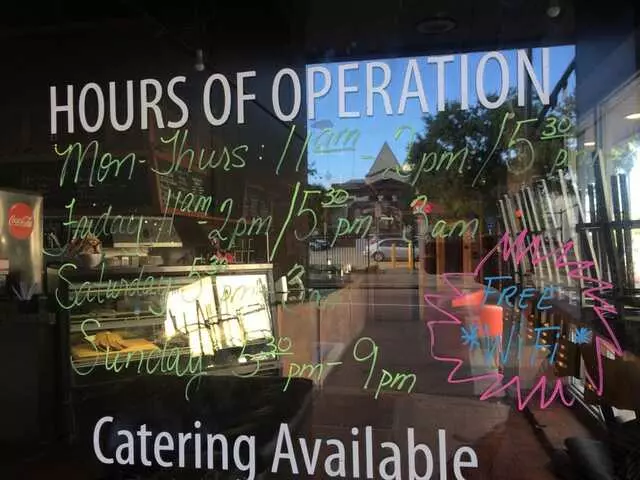 HOURS OF OPERATION
Mon-Thurs: 11am - 2pm / 5:30 pm
Friday 11am - 2pm / 5:30 pm - 3am
Saturday 5:30 pm - 3am
Sunday 5:30 pm - 9pm
FREE
*WiFi*
Catering Available
Coca-Cola